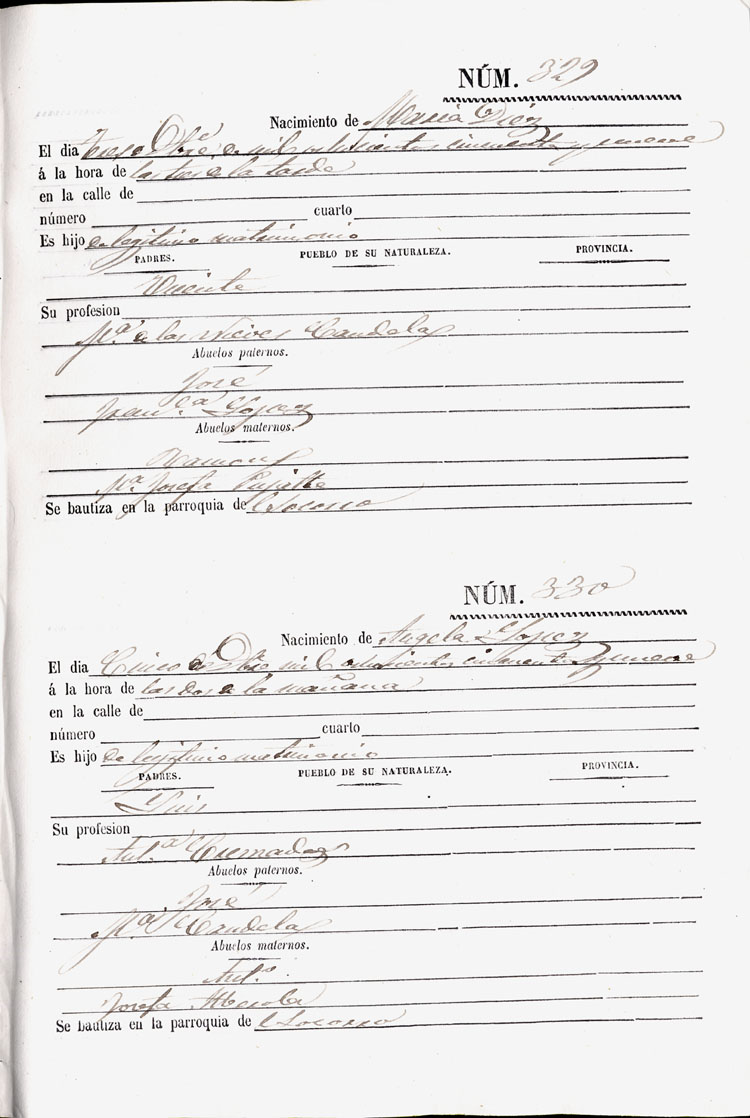 NÚM. 329
Nacimiento de Maria Diez
El dia trece Dbre. de mil ochocientos cincuenta y nueve
á la hora de las tres de la tarde
en la calle de
número cuarto
Es hijo de legitimo matrimonio
PADRES. PUEBLO DE SU NATURALEZA. PROVINCIA.
Vicente
Su profesion
Mª. de las Nieves Candela
Abuelos paternos.
José
Franca. Lopez
Abuelos maternos.
Ramon
Mª. Josefa
Se bautiza en la parroquia de el Socorro
NÚM. 330
Nacimiento de Angela Lopez
El dia Cinco de Dbre mil ochocientos cincuenta y nueve
á la hora de las dos de la mañana
en la calle de
número cuarto
Es hijo de legitimo matrimonio
PADRES. PUEBLO DE SU NATURALEZA. PROVINCIA.
Luis
Su profesion
Antª. Cremades
Abuelos paternos.
José
Mª. Candela
Abuelos maternos.
Antº.
Josefa
Se bautiza en la parroquia de el Socorro